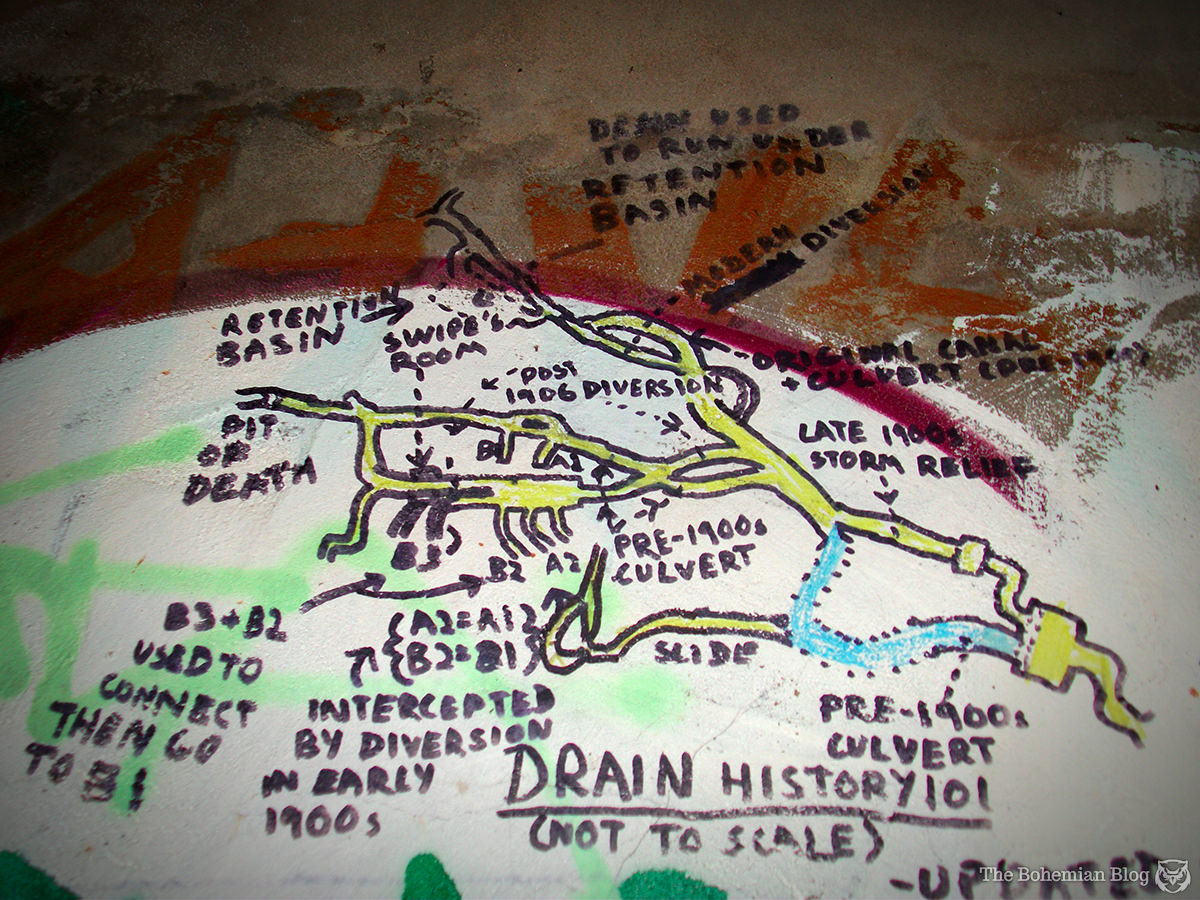 DESIGN USED
TO RUN UNDER
RETENTION
BASIN
MODERN
DIVERSION
RETENTION
BASIN
SWIPE'S
ROOM
ORIGINAL CANAL
+ CULVERT
POST
1906 DIVERSION
PIT
OF
DEATH
B1
A1
LATE 1900s
STORM RELIEF
B3
B2
A2
PRE-1900s
CULVERT
B3+B2
USED TO
CONNECT
THEN GO
TO B1
(A2=A1)
{B2=B1}
INTERCEPTED
BY DIVERSION
IN EARLY
1900s
SLIDE
PRE-1900s
CULVERT
DRAIN HISTORY 101
(NOT TO SCALE)
-UPDATED
The Bohemian Blog